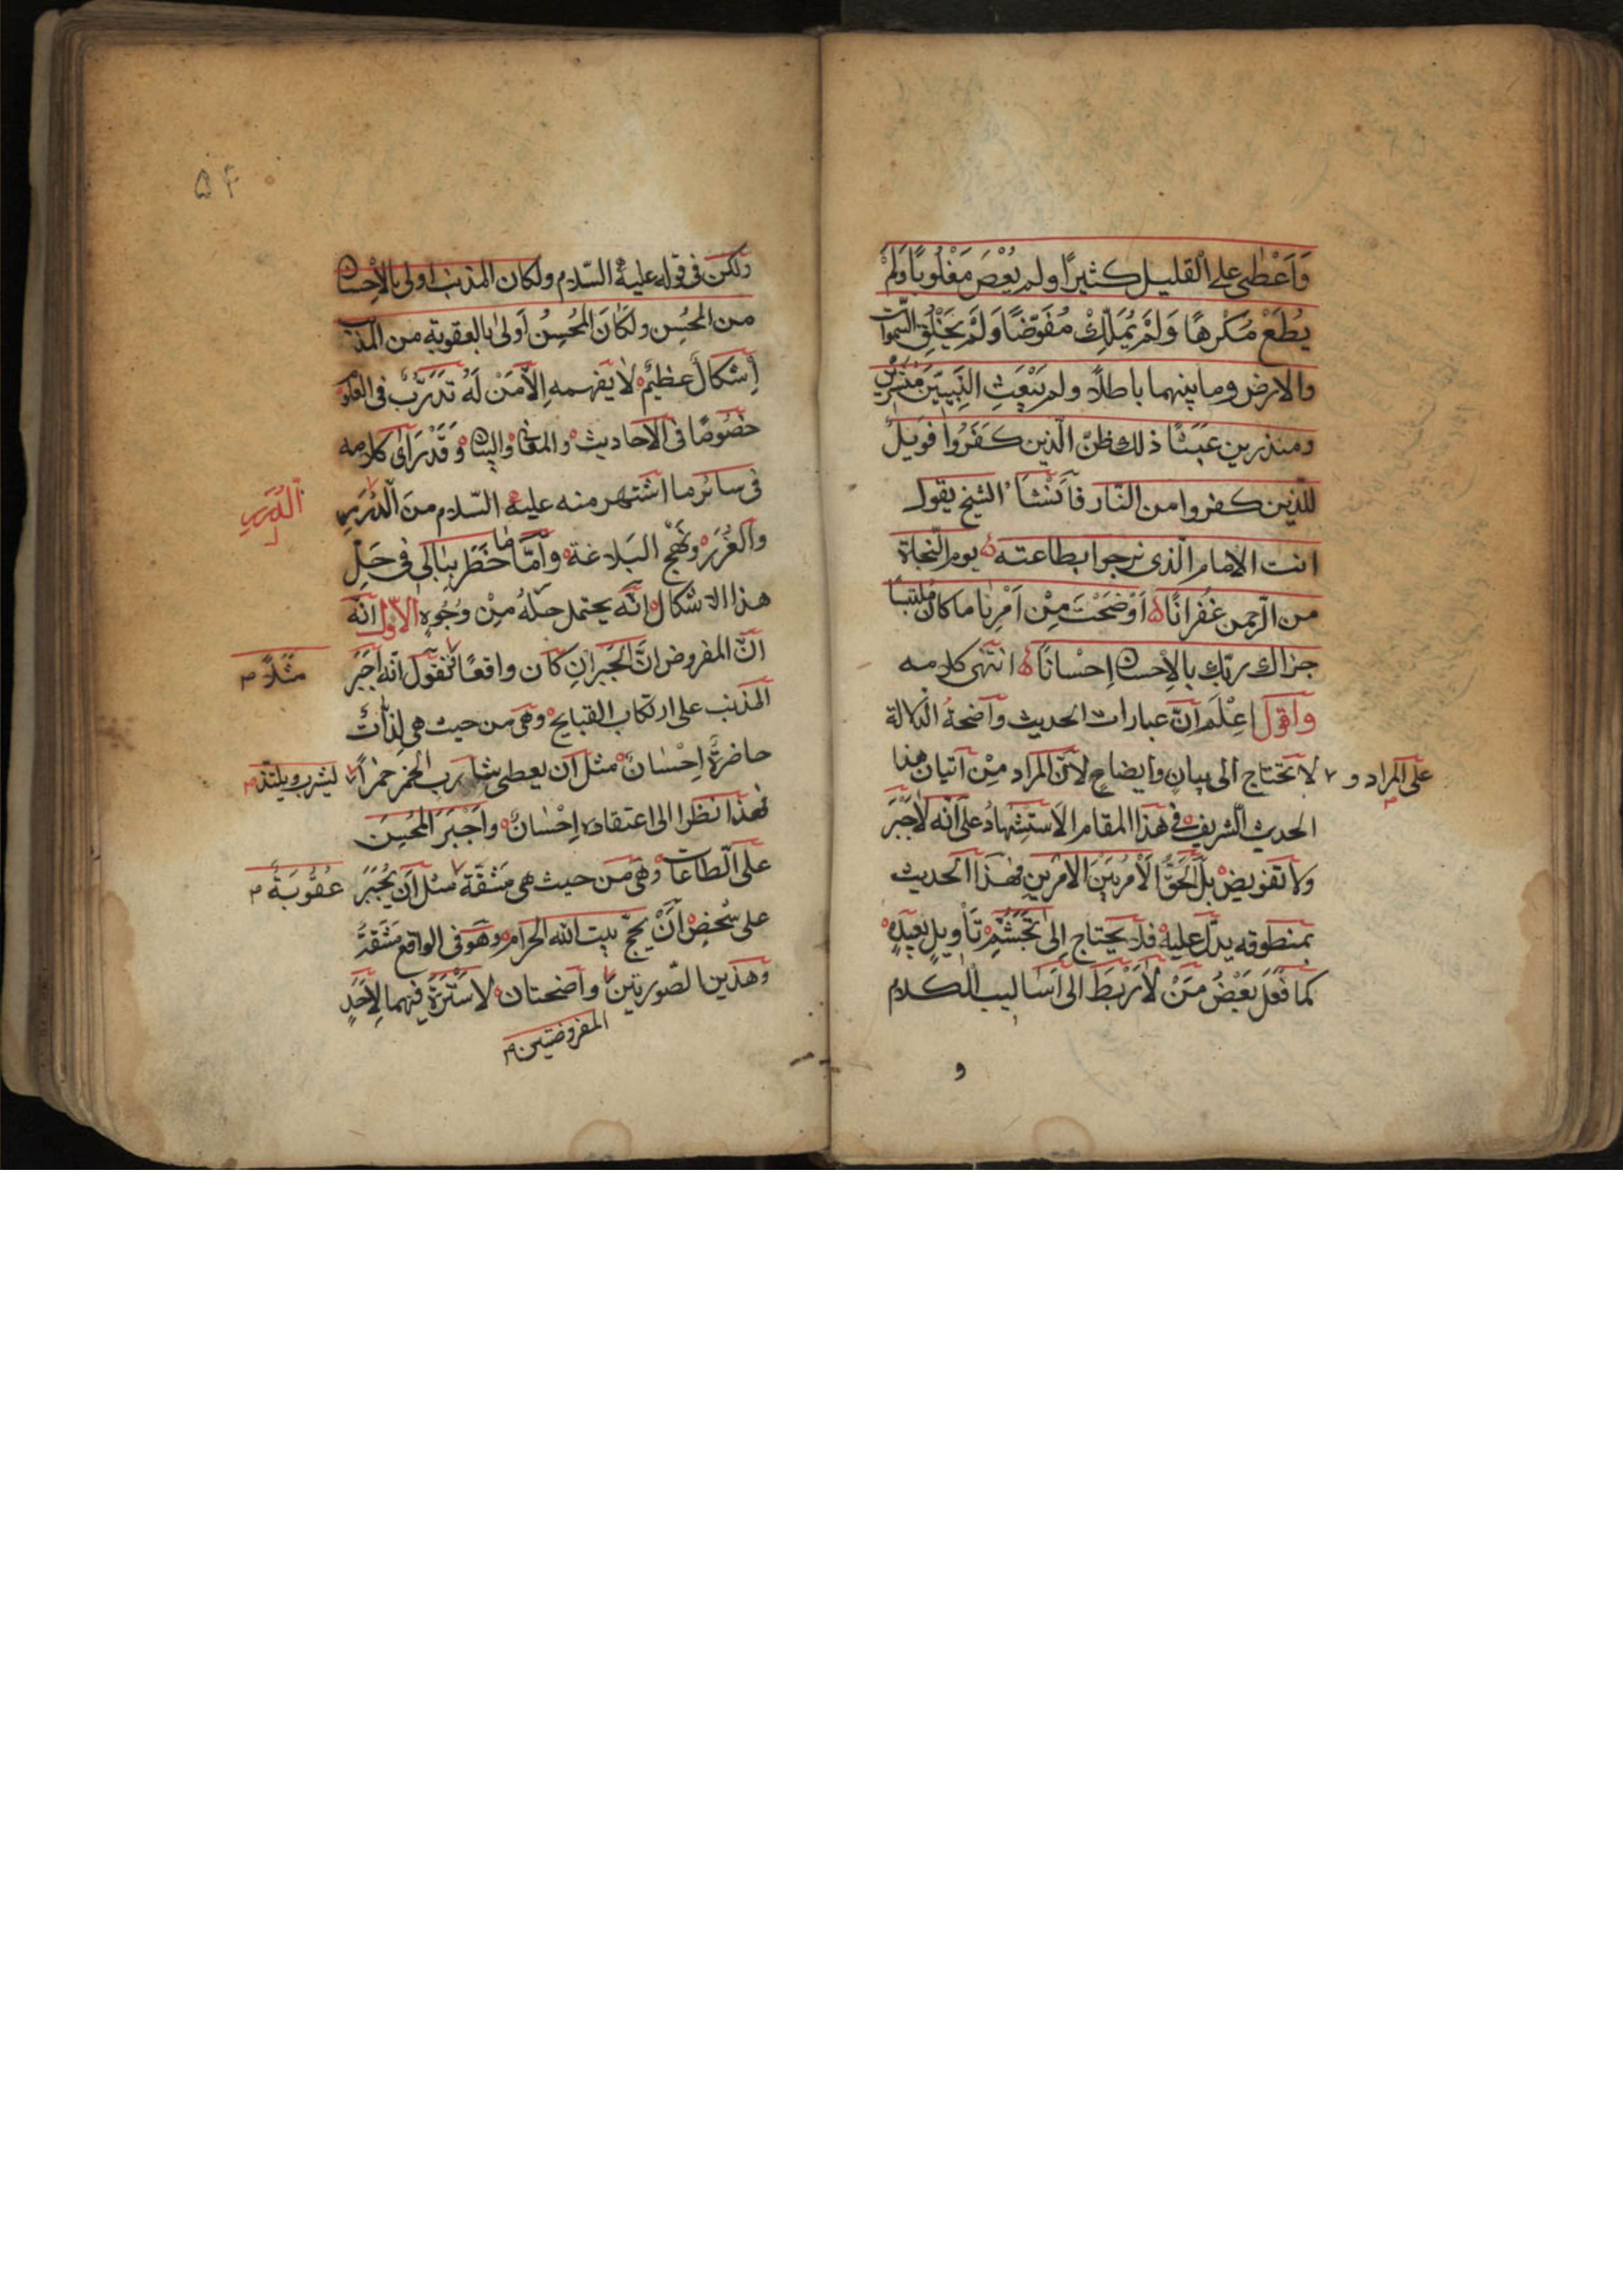 وَاَعْطٰى على الْقليل كثيرًا ولم يُعْصَ مَغْلُوبًا وَلَمْ
يُطَعْ مَكْرِهًا وَلَمْ يُمَلِّكْ مُفَوّضًا وَلَمْ يَخْلُقِ السّموات
والارض وما بينهما باطلاً ولم يَبْعَثِ النَّبِيّينَ مُبَشّرين
ومنذرين عَبَثًا ذلك ظنّ الّذين كَفَرُوا فَوَيلٌ
للّذين كفروا من النّار فَاَنْشَأَ الشيخ يقول
انت الامام الّذى نرجوا بطاعته يوم النّجاة
من الرّحمن غُفْرانًا اَوْضَحْتَ مِنْ اَمْرِنا ما كان مُلتبسًا
جزاك ربّك بالاِحسان اِحْسانًا انتهى كلامه
واقول اِعْلَم انّ عبارات الحديث واضحةُ الدّلالة
على المراد و لا تحتاج الى بيانٍ وايضاحٍ لانّ المراد مِنْ اتيان هذا
الحديث الشّريف فى هذا المقام الاستشهادُ على انّه لاٰجَبْرَ
ولا تفويض بل الحَقُّ الاَمْرُ بَيْنَ الامْرَينِ فهذا الحديث
بمنطوقه يدلّ عليه فلا يحتاج اِلى تَجَشُّمِ تَأْويلٍ بَعيدٍ
كما فَعَلَ بَعْضُ مَنْ لاٰرَبْطَ الى اَساليب الكلام
و
۵۴
ولكن فى قوله عليه السّلام ولكان المذنب اولى بالاِحسان
من المحُسِن ولكَانَ المُحْسِنُ اَولىٰ بالعقوبة من المذنب
اِشكالٌ عظيمٌ لاٰ يفهمه اِلاّ مَنْ لَهُ تَدَرُّبٌ فى العلوم
خصُوصًا فى الاحاديث والمعانى والبيان وَقَدْ رَاَى كلامه
فى سائر ما اشتهر منه عليه السّلام منَ الدُّرَرِ
الدُرَرِ
والغُرَرِ ونَهْجِ البَلاغة وأمّا ما خَطَرَ ببٰالى فى حَلِّ
هذا الاشكال انّه يحتمل حَلّهُ مِنْ وُجُوهٍ الاوّل انّه
انّ المفروض انّ الجَبْرَ اِن كان واقعًا فنقول انّه اَجْبَرَ
مثلاً
المذنب على ارتكاب القبايح وهى من حيث هى لِذّاتٌ
حاضرةٌ اِحْسانٌ مثل اَن يعطى شاربَ الخمر خمرًا ليشرب ويلتذّ
فهذا نظرًا الى اعتقاده اِحْسٰانٌ واَجْبَرَ المُحْسِنَ
على الطّاعات وهى من حيث هى مَشَقّة عُقُوبَةٌ مثل اَن يُجْبَرَ
على شَخْصٍ اَنْ يحجّ بيت الله الحرام وهو فى الواقع مَشَقّةٌ
وهذين الصّورتين المفروضتين واضحتان لا سُتْرَةَ فيهما لِاَحَدٍ